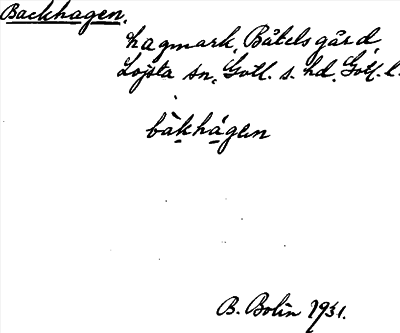 Backhagen.
hagmark, Båtels gård,
Lojsta sn, Gotl. s. hd, Gotl. l.
bàkhágen
B. Bolin 1931.